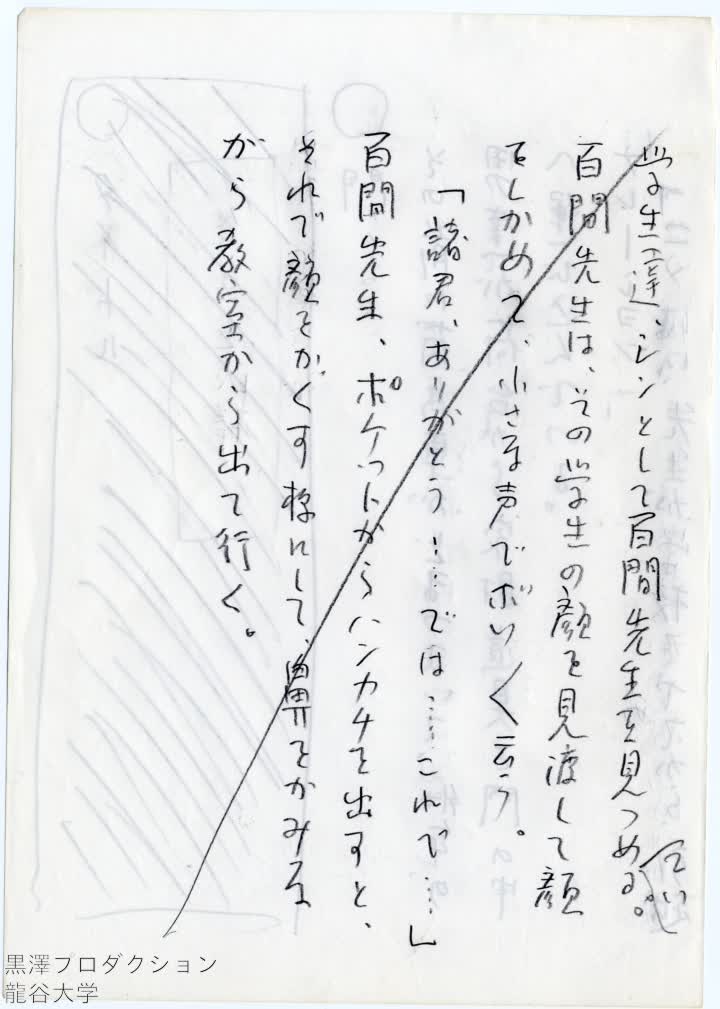 学生達、シンとして百間先生を見つめている。
百間先生は、その学生の顔を見渡して顔
をしかめて、小さな声でボソ〳〵云う。
「諸君、ありがとう……では……これで……」
百間先生、ポケットからハンカチを出すと、
それで顔をかくす様にして、鼻をかみな
がら教室から出て行く。
黒澤プロダクション
龍谷大学